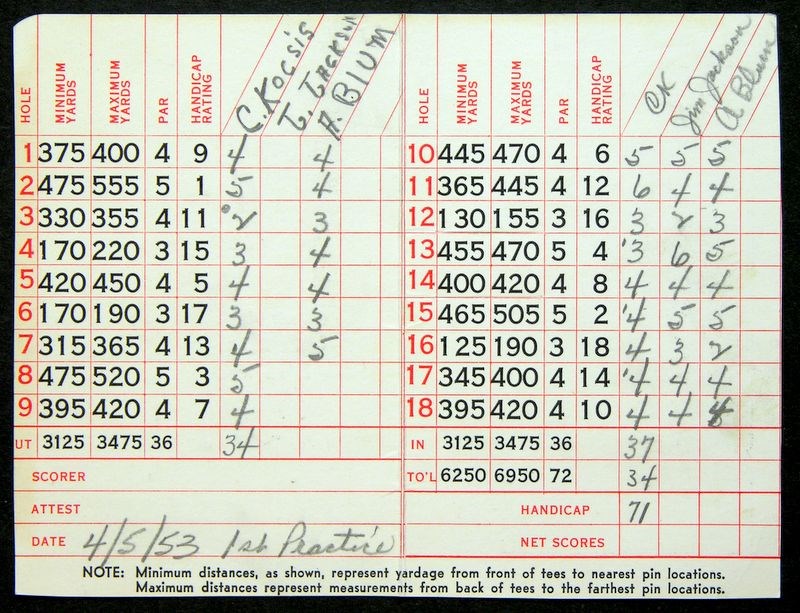 HOLE MINIMUM YARDS MAXIMUM YARDS PAR HANDICAP RATING C. KOCSIS T. JACKSON A. BLUM
1 375 400 4 9 4 4
2 475 555 5 1 5 4
3 330 355 4 11 2 3
4 170 220 3 15 3 4
5 420 450 4 5 4 4
6 170 190 3 17 3 3
7 315 365 4 13 4 5
8 475 520 5 3 5
9 395 420 4 7 4
UT 3125 3475 36 34
SCORER
ATTEST
DATE 4/5/53 1st Practice
HOLE MINIMUM YARDS MAXIMUM YARDS PAR HANDICAP RATING CK Jim Jackson A Blum
10 445 470 4 6 5 5 5
11 365 445 4 12 6 4 4
12 130 155 3 16 3 2 3
13 455 470 5 4 '3 6 5
14 400 420 4 8 4 4 4
15 465 505 5 2 '4 5 5
16 125 190 3 18 4 3 2
17 345 400 4 14 '4 4 4
18 395 420 4 10 4 4
IN 3125 3475 36 37
TO'L 6250 6950 72 34
HANDICAP 71
NET SCORES
NOTE: Minimum distances, as shown, represent yardage from front of tees to nearest pin locations.
Maximum distances represent measurements from back of tees to the farthest pin locations.